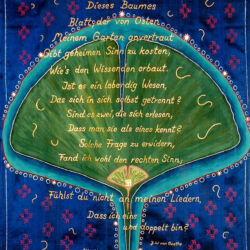 Dieses Baumes
Blatt, der von Osten
Meinem Garten anvertraut
Gibt geheimen Sinn zu kosten,
Wie's den Wissenden erbaut.
Ist es ein lebendig Wesen,
Das sich in sich selbst getrennt?
Sind es zwei, die sich erlesen,
Dass man sie als eines kennt?
Solche Frage zu erwidern,
Fand ich wohl den rechten Sinn,
Fühlst du nicht an meinen Liedern,
Dass ich eins
und doppelt bin?
J.W. von Goethe